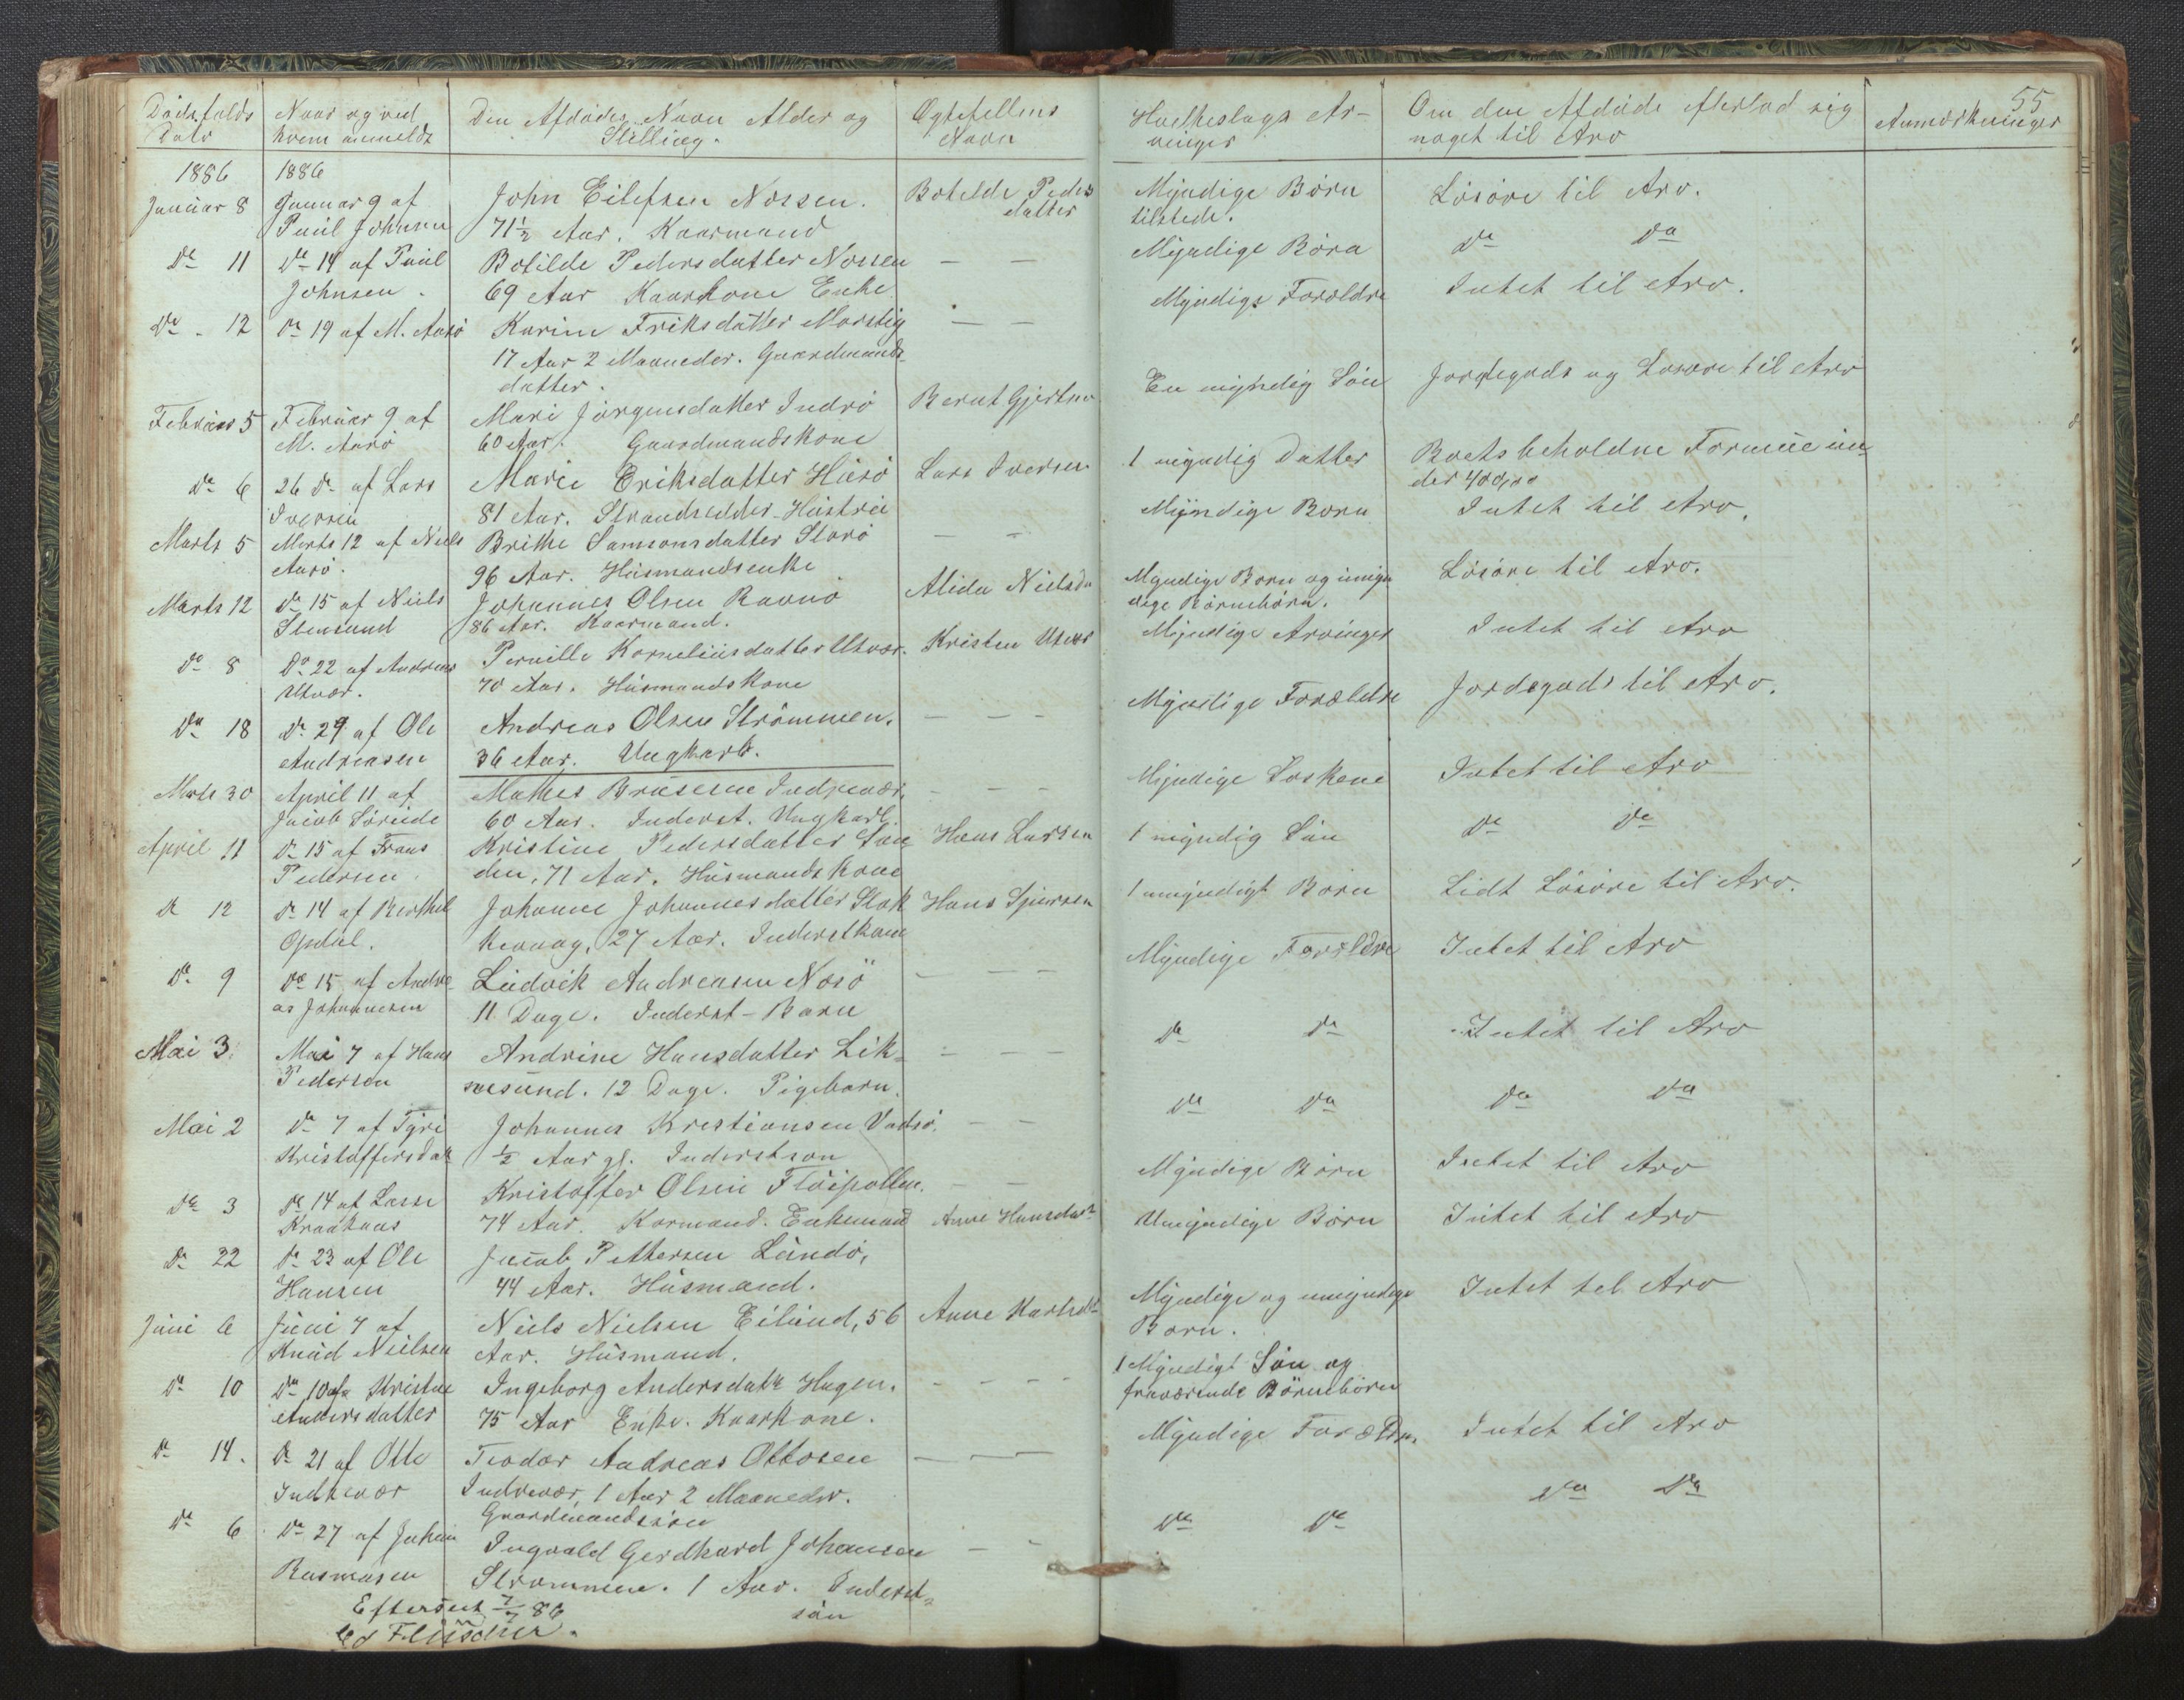 55
Dødsfalds Dato
Naar og ved hvem anmeldt
Den Afdødes Navn Alder og Stilling.
Ægtefellens Navn
Hvilkeslags Arvinger
Om den Afdøde efterlod sig noget til Arv
Anmærkninger
1886 1886
Januar 8 Januar 9 af John Eilefsen Nossen. Botelde Peders Myndige Børn Løsøre til Arv.
Paul Johnsen 71½ Aar. Kaarmand datter tilstede.
Do 11 Do 14 af Paul Botilde Pedersdatter Nossen — — Myndige Børn Do Do
Johnsen. 69 Aar Kaarkone Enke
Do 12 Do 19 af M. Aarø Karine Eriksdatter — — Myndige Forældre Intet til Arv.
17 Aar 2 Maaneder. Gaardmands-
datter.
Februar 5 Februar 9 af Mari Jørgensdatter Indrø Berut Gjertsen En myndig Søn Jordegods og Løsøre til Arv
M. Aarø 60 Aar. Gaardmandskone
Do 6 26 Do af Lars Marie Eriksdatter Husø Lars Iversen 1 myndig Datter Boets beholdne Formue un-
Iversen 81 Aar. Strandsidder-Hustru der 400,00
Marts 5 Marts 12 af Niels Brithe Samsonsdatter Storø — — Myndige Børn Intet til Arv.
Aarø. 96 Aar. Husmandsenke
Marts 12 Do 15 af Niels Johannes Olsen Ravnø Alida Nielsd Myndige Børn og umyn Løsøre til Arv.
Stensund 86 Aar. Kaarmand. dige Børnebørn.
Do 8 Do 22 af Andreas Pernille Korneliusdatter Utvær. Kristen Utvær Myndige Arvinger Intet til Arv
Utvær. 70 Aar. Husmandskone
Do 18 Do 29 af Ole Andreas Olsen Strømmen. — — — Myndige Forældre Jordegods til Arv.
Andreasen 36 Aar. Ungkarl.
Marts 30 April 11 af Mathis Indrevær. — — — Myndige Søskene Intet til Arv
Jacob Søreide 60 Aar. Inderst. Ungkarl.
April 11 Do 15 af Frans Kristine Pedersdatter San Hans Larsen 1 myndig Søn Do Do
Pedersen. den, 71 Aar. Husmandskone
Do 12 Do 14 af Berthel Johanne Johannesdatter Stok Hans 1 umyndigt Børn Lidt Løsøre til Arv.
Opdal. kevaag, 27 Aar. Inderstkone
Do 9 Do 15 af Andre- Ludvik Andreasen Nosø — — — Myndige Forældre Intet til Arv
as Johannesen 11 Dage. Inderst-Barn
Mai 3. Mai 7 af Hans Andrine Hansdatter Lik- — — — Do Do Intet til Arv
Pedersen nesund. 12 Dage. Pigebarn.
Mai 2 Do 7 af Tyri Johannes Kristiansen Vadsø. — — Do Do Do Do
Kristoffersdatt ½ Aar gl. Inderstsøn
Do 3 Do 14 af Lasse Kristoffer Olsen Fløipollen. — — Myndige Børn Intet til Arv
Kraakaas 74 Aar. Karmand. Enkemand
Do 22 Do 23 af Ole Jacob Pettersen Lundø, Anne Hansdatr Umyndige Børn Intet til Arv
Hansen 44 Aar. Husmand.
Juni 6 Juni 7 af Niels Nielsen Eilund, 56 Anne Myndige og umyndige Intet til Arv
Knud Nielsen Aar. Husmand. Børn.
Do 10 Do 10 af Kristine Ingeborg Andersdatr Hagen. — — — — 1 Myndigt Søn og
Andersdatter 75 Aar Enke. Kaarkone. fraværende Børnebørn
Do 14. Do 21 af Otto Teodor Andreas Ottosen — — Myndige Forældre. Intet til Arv
Indrevær Indrevær, 1 Aar 2 Maaneder.
Gaardmandssøn
Do 6 Do 27 af Johan Ingvald Gerdhard Johansen — — Do Do Do Do
Rasmusen Strømmen. 1 Aar. Inderst-
søn
Efterseet 7/7 86